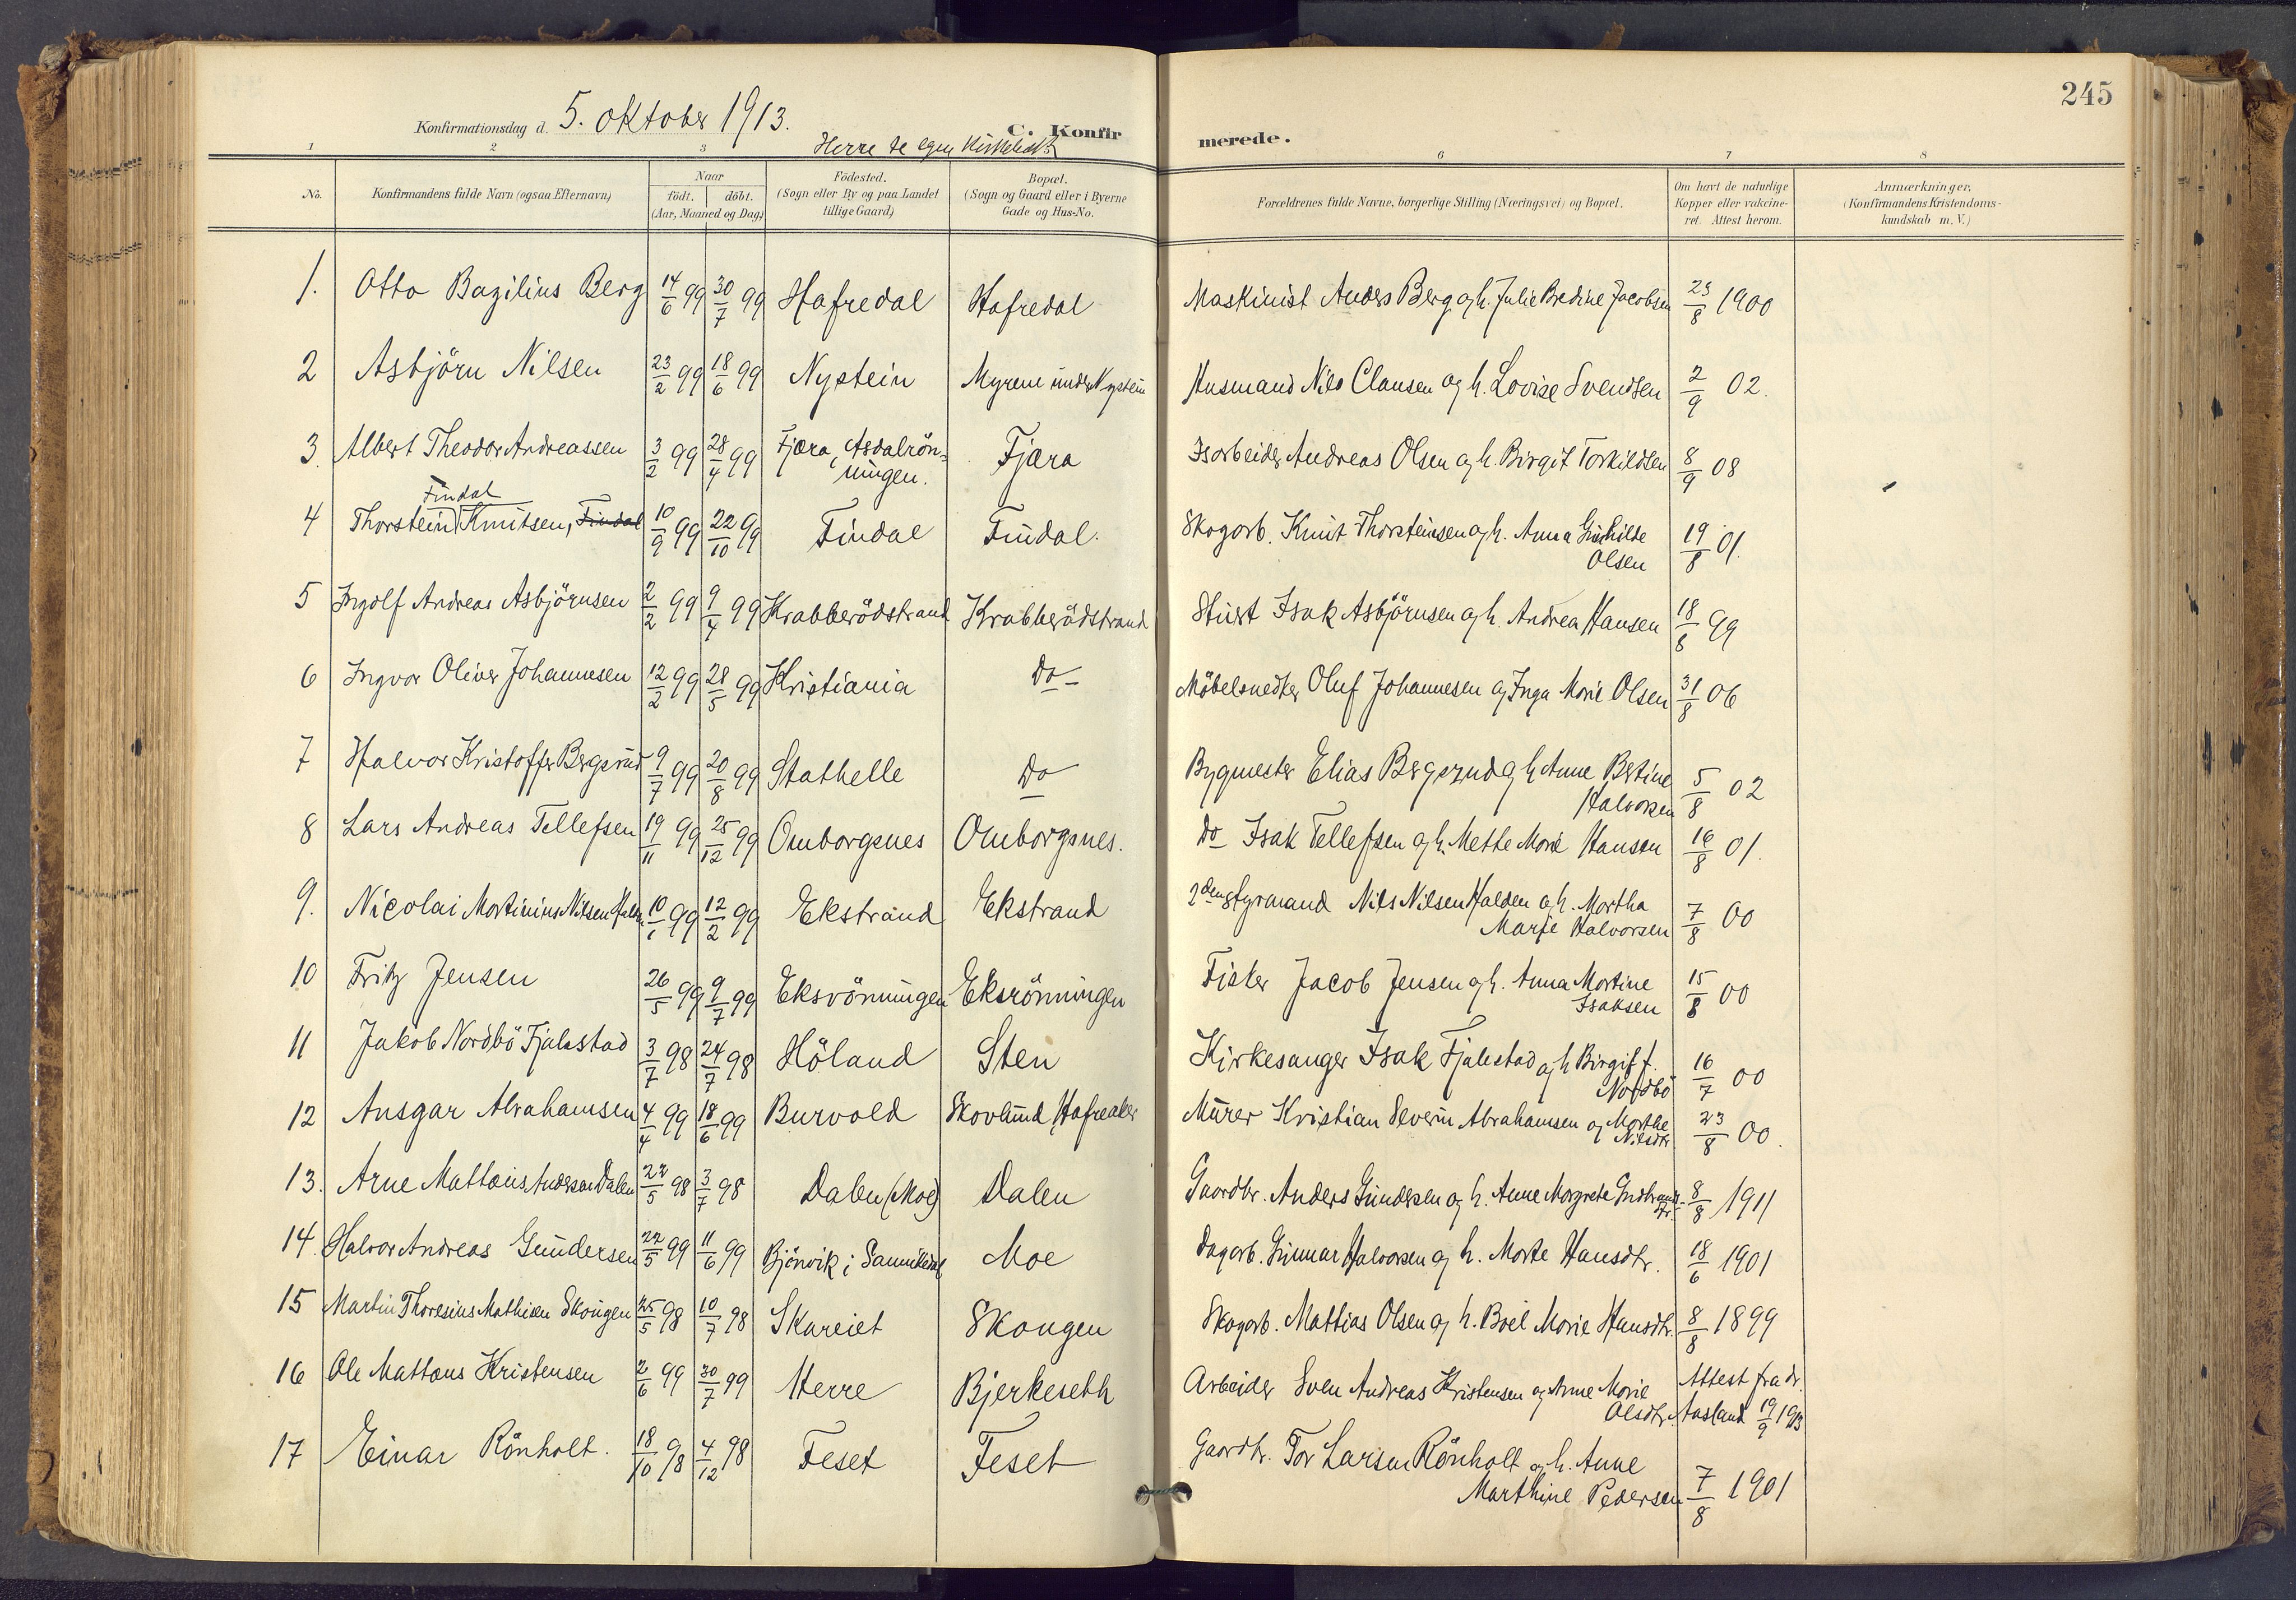 245
Konfirmationsdag d. 5. oktober 1913.
C. Konfirmerede.
Herre se egen
1 2 3 6 7 8
No. Konfirmandens fulde Navn (ogsaa Efternavn) Naar født. døbt. (Aar, Maaned og Dag) Födested. (Sogn eller By og paa Landet tillige Gaard) Bopæl. (Sogn og Gaard eller i Byerne Gade og Hus-No. Forældrenes fulde Navne, borgerlige Stilling (Næringsvei) og Bopæl. Om havt de naturlige Kopper eller vakcineret. Attest herom. Anmærkninger. (Konfirmandens Kristendomskundskab m. V.)
1. Otto Bazilius Berg 14/6 99 30/7 99 Hafredal Hafredal Maskinist Anders Berg og h. Julie Bredine Jacobsen 23/8 1900
2 Asbjörn Nilsen 23/2 99 18/6 99 Nystein Myrene under Nystein Husmand Nils Clausen og h. Lovise Svendsen 2/9 02.
3. Albert Theodor Andreassen 3/2 99 28/4 99 Fjæra, Asdalrön=
ningen. Fjæra Isarbeider Andreas Olsen og h. Birgit Torkildsen 8/9 08
Findal
4 Thorstein Knutsen, Findal 10/9 99 22/10 99 Findal Findal. Skogarb. Knut Thorsteinsen og h. Anna Gunhilde
Olsen 19/8 01.
5 Ingolf Andreas Asbjörnsen 2/2 99 9/4 99 Krabberödstrand Krabberödstrand Stuert Isak Asbjörnsen og h. Andrea Hansen 18/8 99
6 Ingvar Oliver Johannesen 12/2 99 28/5 99 Kristiania Do Möbelsnedker Oluf Johannesen og Inga Marie Olsen 31/8 06
7 Halvor Kristoffer Bergsrud 9/7 99 20/8 99 Stathelle Do Bygmester Elias Bergsrud og h. Anne Bertine
Halvorsen 5/8 02
8 Lars Andreas Tellefsen 19/11 99 25/12 99 Omborgsnes Omborgsnes. Do Isak Tellefsen og h. Mette Marie Hansen 16/8 01.
9. Nicolai Martinius Nilsen 10/1 99 12/2 99 Ekstrand Ekstrand 2den Styrmand Nils Nilsen Halden og h. Martha
Marie Halvorsen 7/8 00
10 Fritz Jensen 26/5 99 9/7 99 Eksrönningen Eksrönningen Fisker Jacob Jensen og h. Anna Martine
Isaksen 15/8 00
11 Jakob Nordbö Fjalestad 3/7 98 24/7 98 Höland Sten Kirkesanger Isak Fjalestad og h Birgit f.
Nordbö 16/7 00
12 Ansgar Abrahamsen 4/4 99 18/6 99 Burvold Skovlund, Hafreaker Murer Kristian Severin Abrahamsen og Marthe
Nilsdtr 23/8 00.
13. Arne Mattæus Andersen Dalen 22/5 98 3/7 98 Dalen (Moe) Dalen Gaardbr. Anders Gundersen og h. Anne Margrete 8/8 1911
14. Halvor Andreas Gundersen 22/5 99 11/6 99 Bjönvik i Sannikedal Moe Dagarb. Gunnar Halvorsen og h. Marte Hansdtr. 18/6 1901
15 Martin Thoresius Mathisen Skougen 25/5 98 10/7 98 Skareiet Skougen Skogarb. Mattias Olsen og h. Boel Marie Hansdtr. 8/8 1899
16 Ole Mattæus Kristensen 2/6 99 30/7 99 Herre Bjerkeseth Arbeider Sven Andreas Kristensen og Anne Marie
Olsdtr. Attest fra dr.
Aasland 19/9 1913
17 Einar Rönholt. 18/10 98 4/12 98 Feset Feset Gaardbr. Tor Larsen Rönholt og h. Anne
Marthine Pedersen 7/8 1901